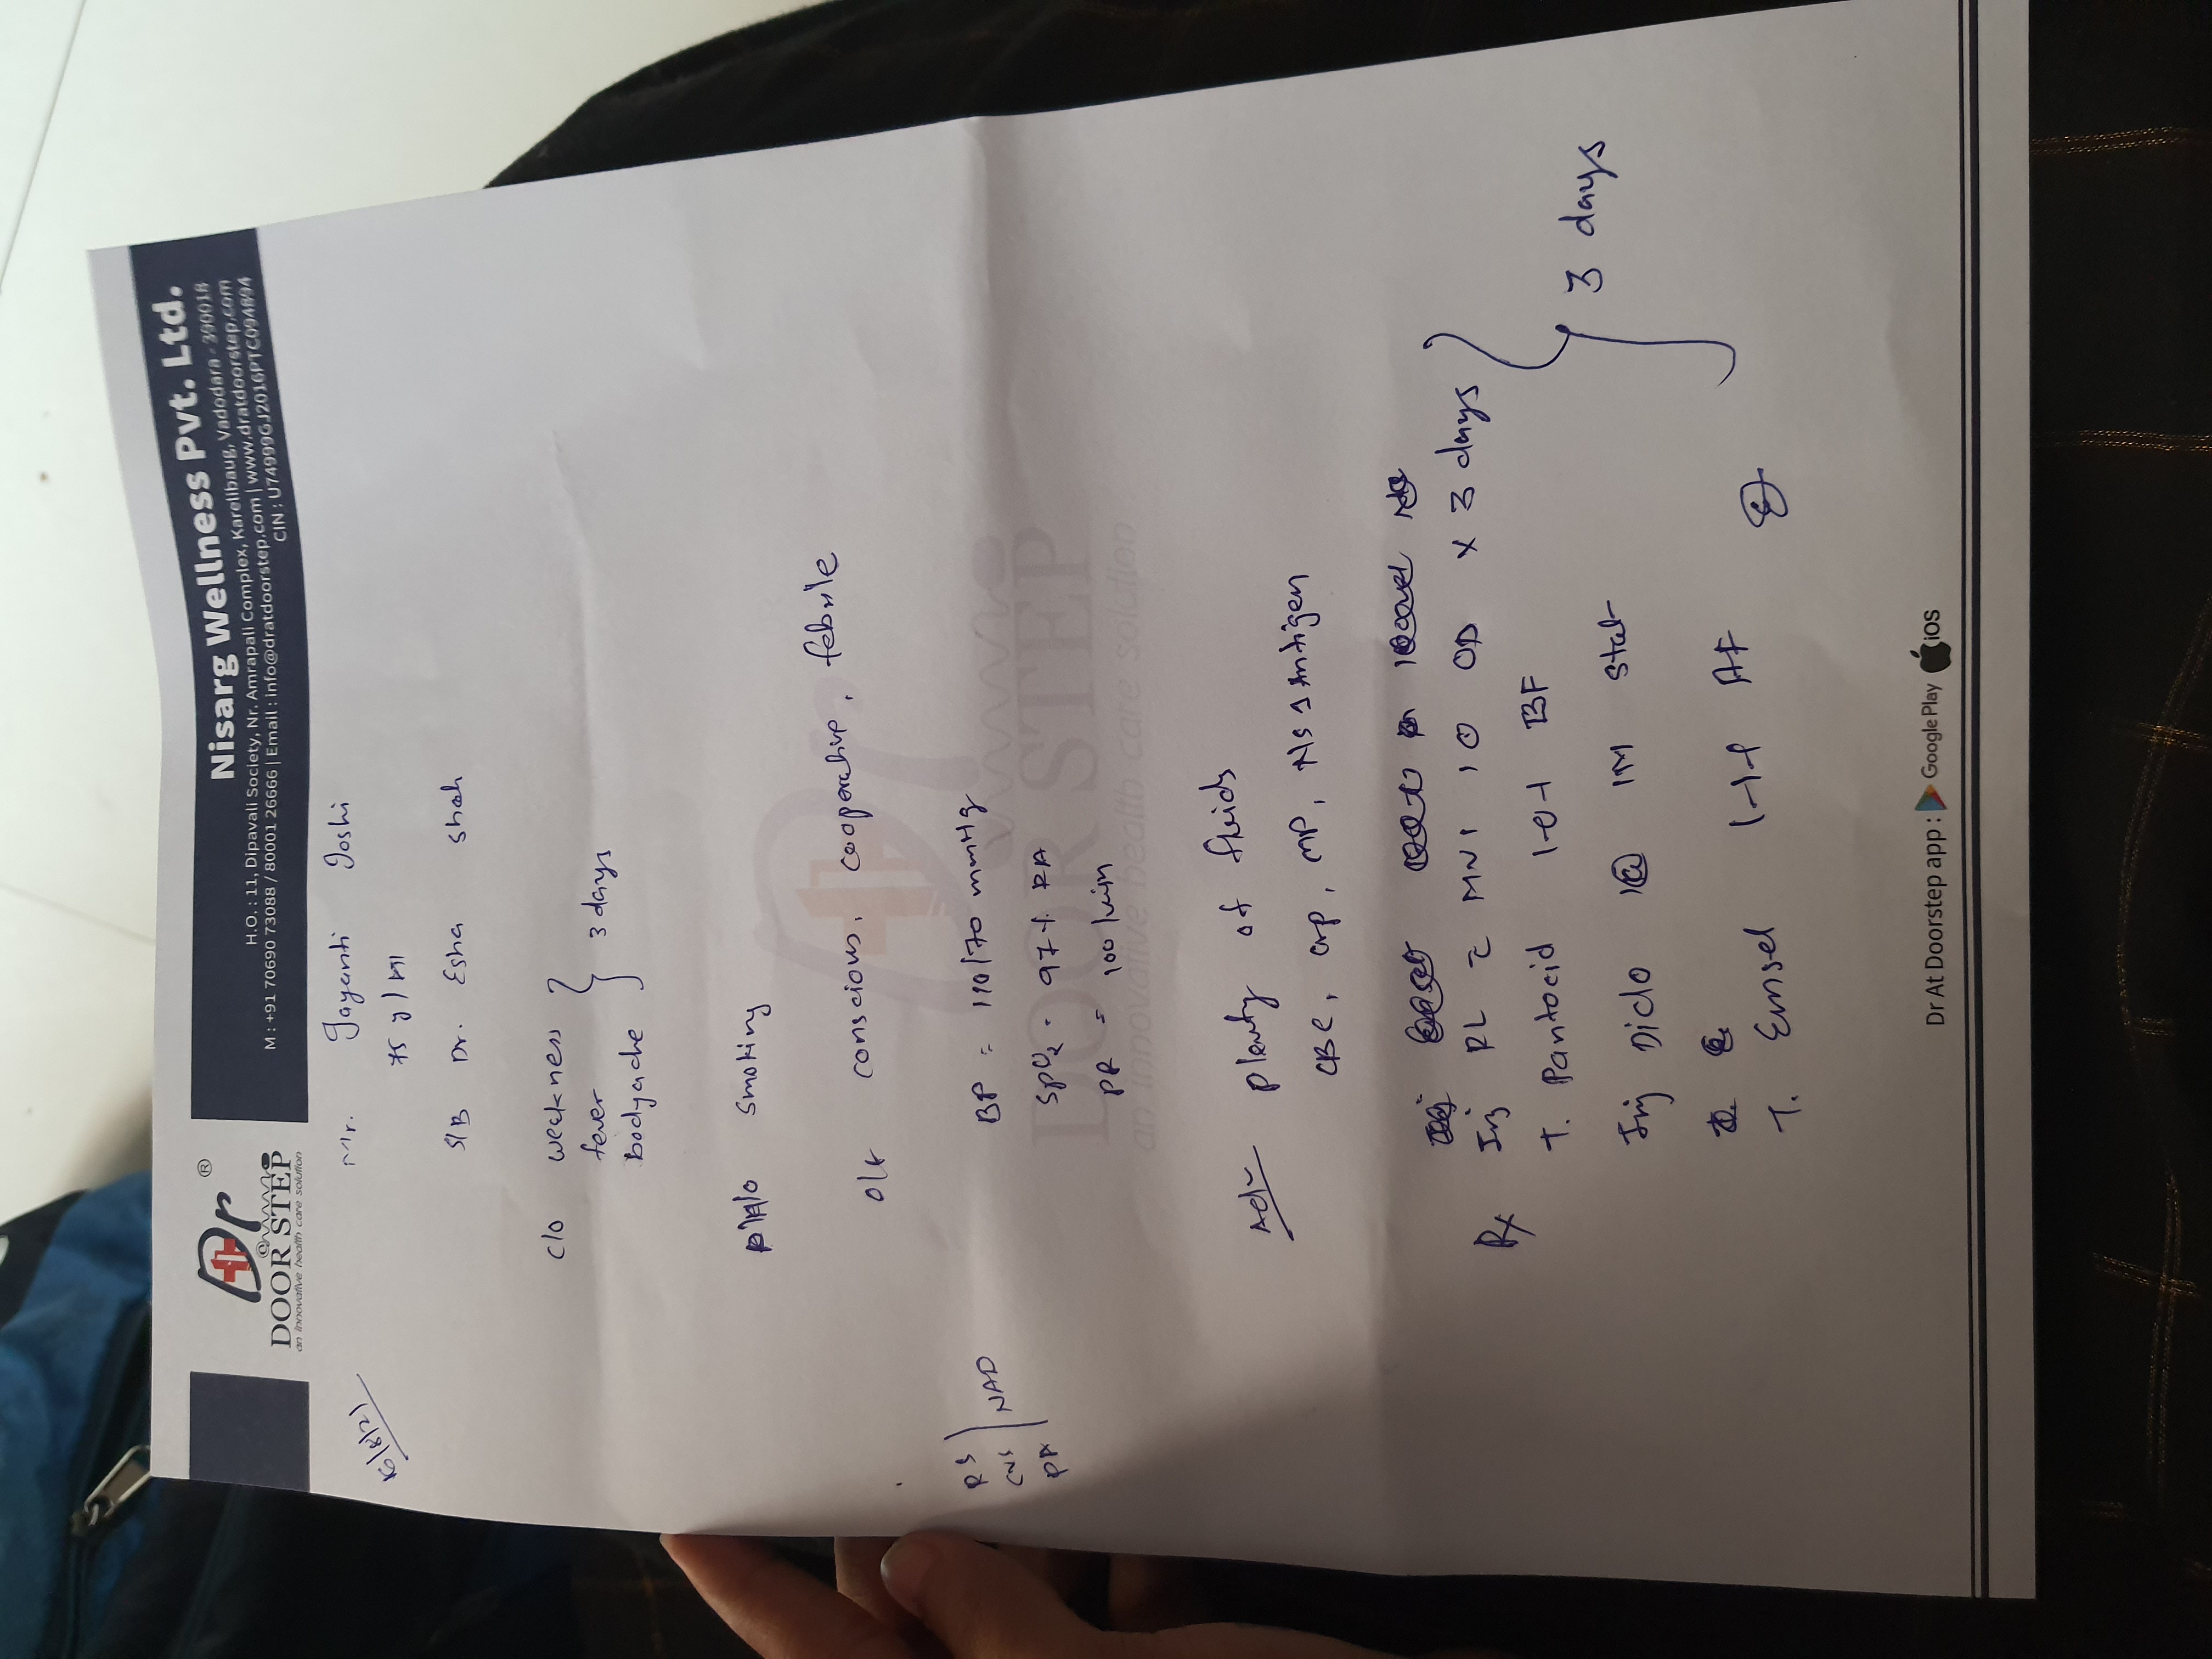 Dr ®
@
DOOR STEP
an innovative health care solution
Nisarg Wellness Pvt. Ltd.
H.O. : 11, Dipavali Society, Nr. Amrapali Complex, Karelibaug, Vadodara - 390018
M : +91 70690 73088 / 80001 26666 | Email : info@dratdoorstep.com | www.dratdoorstep.com
CIN : U74999GJ2016PTC094894
16/8/21
Mr. Jayanti Joshi
75 y / M
S/B Dr. Esha Shah
c/o weekness
fever
bodyache
3 days
smoking
conscious, cooperative, febrile
RS
CVS
PA
NAD
BP = 110/70 mmHg
SpO2 - 97% RA
PR = 100 /min
DOOR STEP
an innovative health care solution
Adv plenty of fluids
CBC, crp, MP, NS 1 Antigen
Rx Inj RL c̄ MVI OD x 3 days
T. Pantocid 1-0-1 BF
Inj Diclo IM stat
T. Emset 1-1-1 AF
3 days
Dr At Doorstep app : Google Play iOS